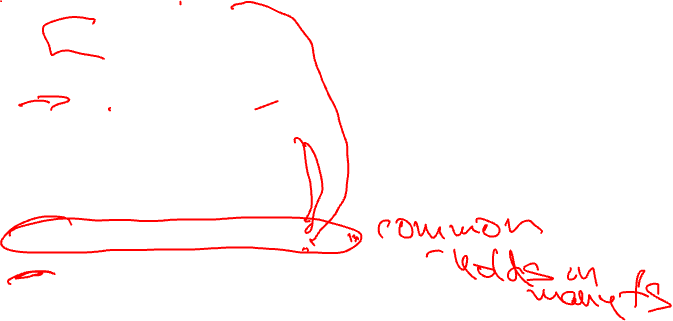 common
holds in
many fs